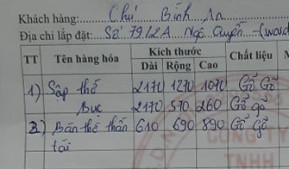 Khách hàng: Chú Bình An
Địa chỉ lắp đặt: Số 79/2A Ngô Quyền
TT Tên hàng hóa Kích thước Chất liệu
Dài Rộng Cao
1) Sập thờ 2170 1270 1070 Gỗ Gõ
Bục 2170 570 260 Gỗ gõ
2) Bàn thờ thần 610 690 890 Gỗ gõ
tài
CÔNG TY
TNHH